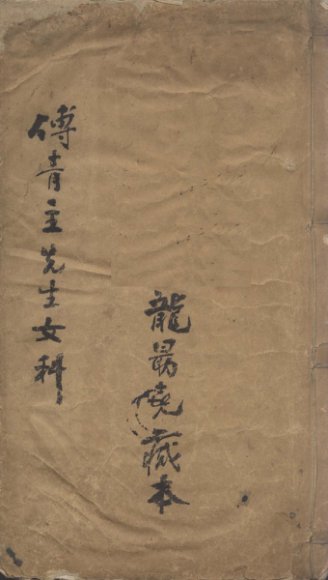 龍曉藏本
傅青主先生女科